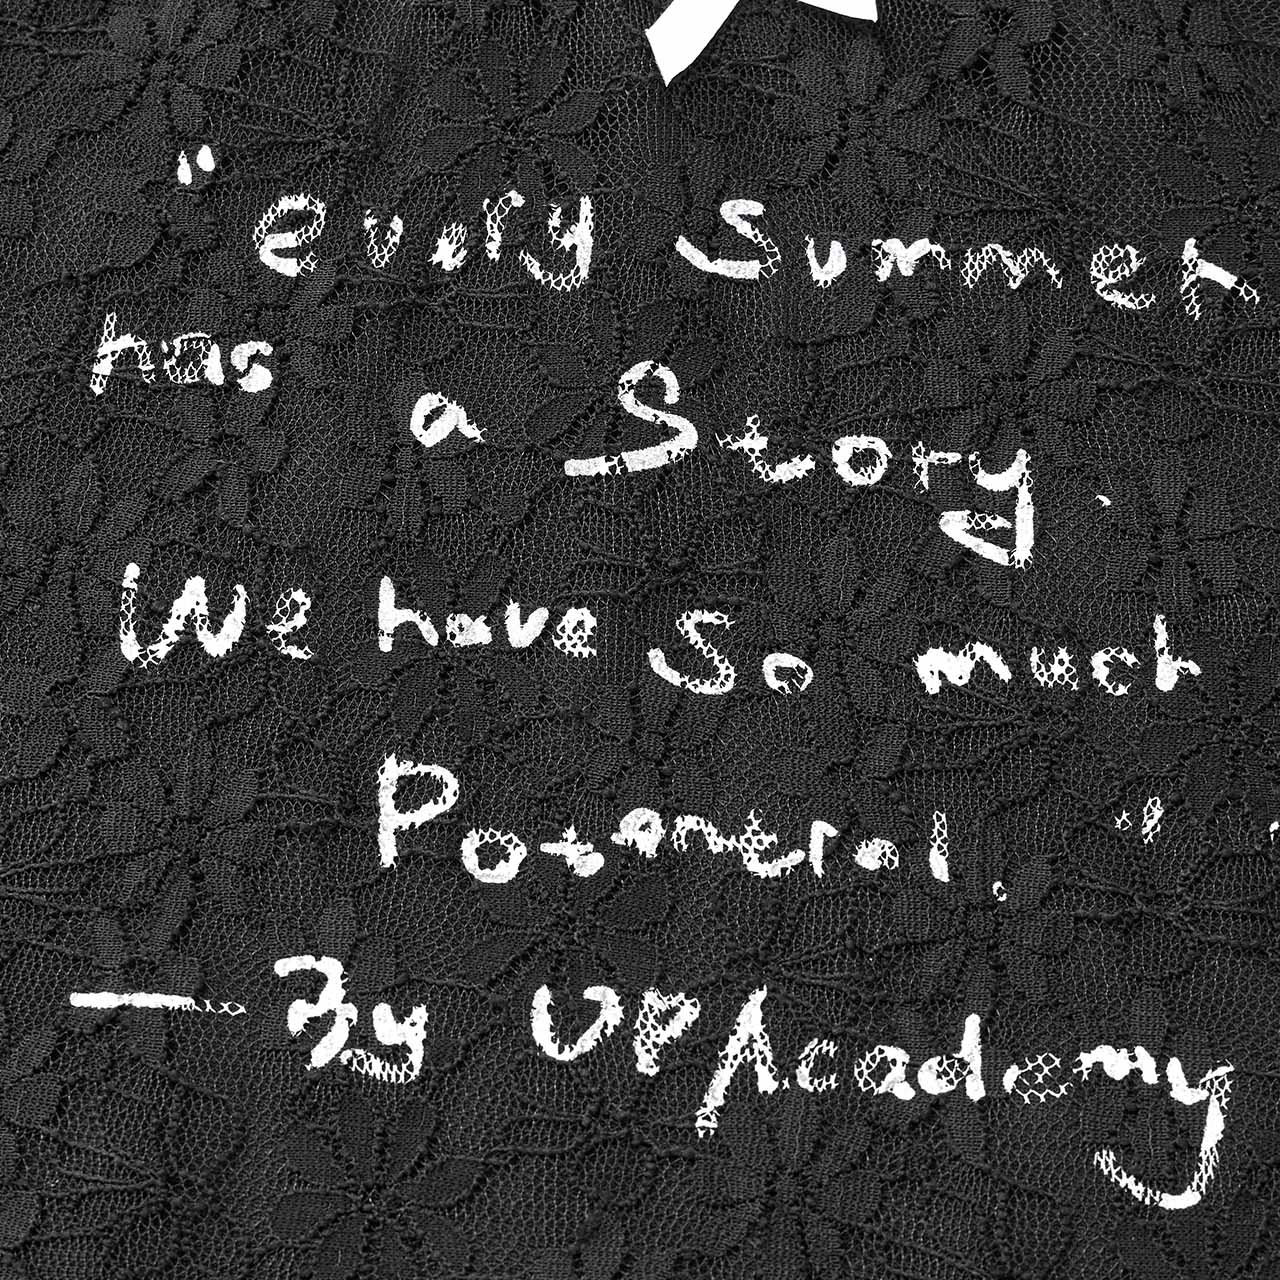 "every Summer
has a Story.
We have So much
Potential."
— By UP Academy